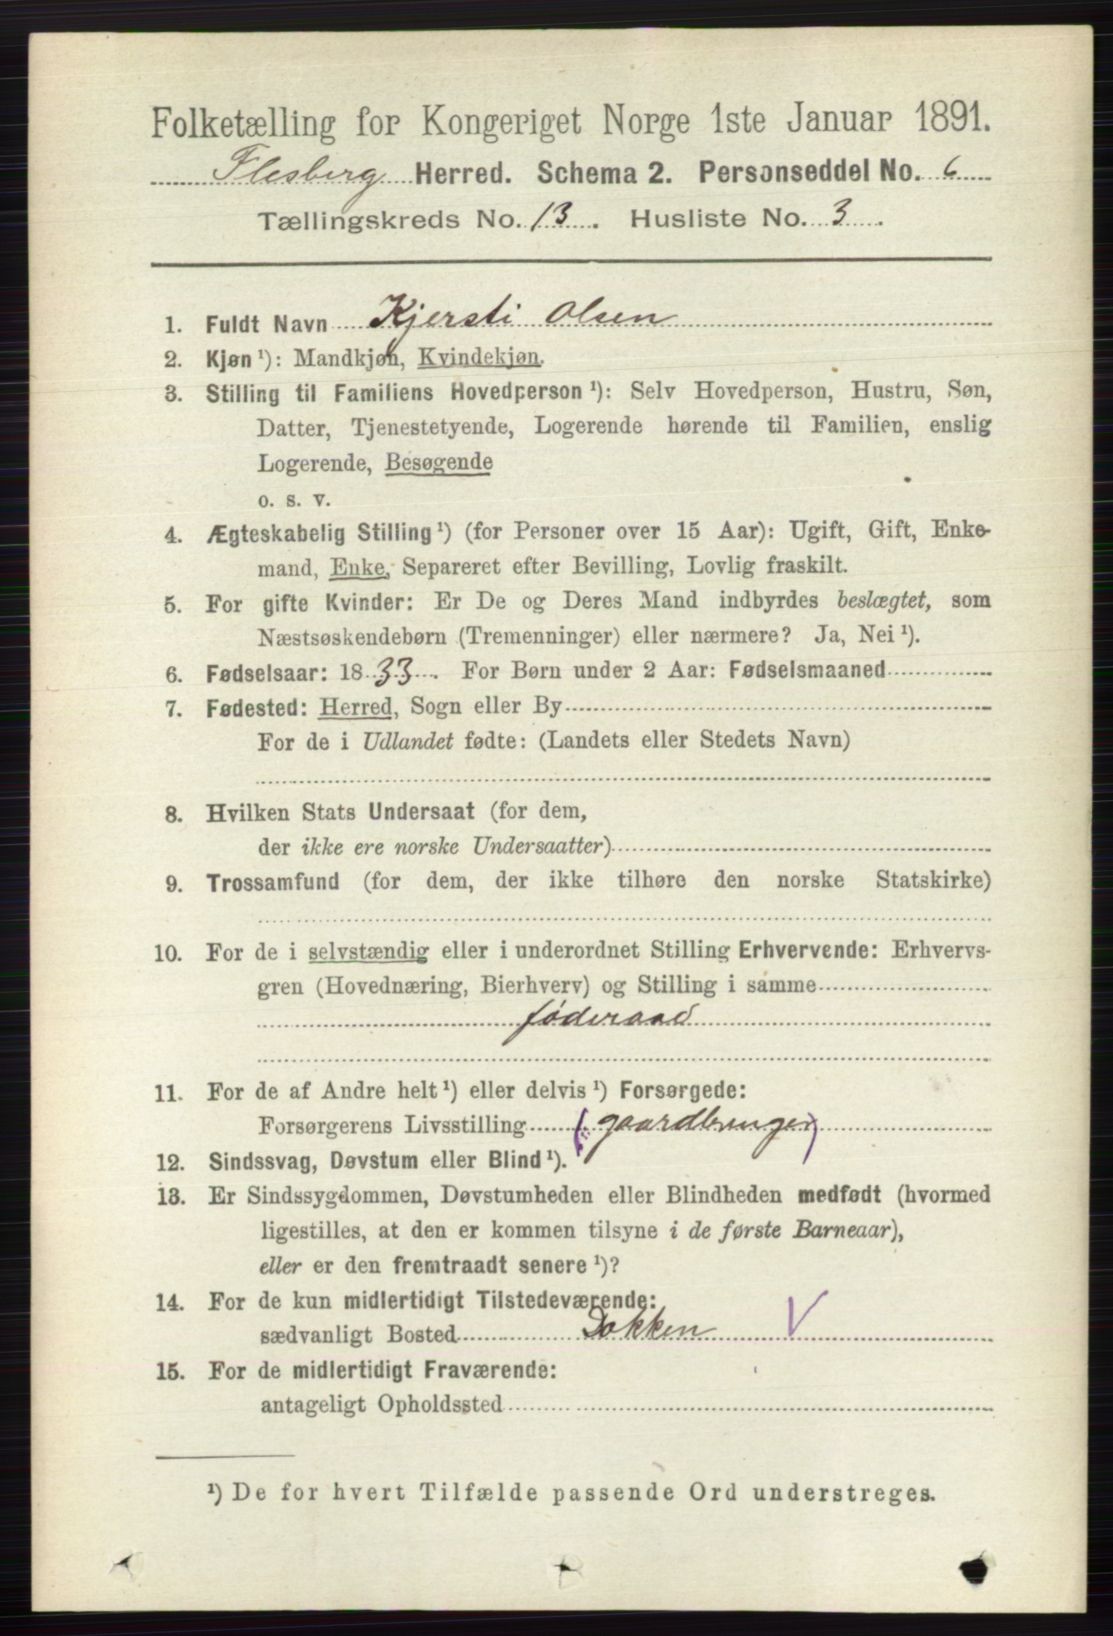 Folketælling for Kongeriget Norge 1ste Januar 1891.
Flesberg Herred. Schema 2. Personseddel No. 6
Tællingskreds No. 13. Husliste No. 3.
1. Fuldt Navn Kjersti Olsen
2. Kjøn¹): Mandkjøn, Kvindekjøn.
3. Stilling til Familiens Hovedperson¹): Selv Hovedperson, Hustru, Søn,
Datter, Tjenestetyende, Logerende hørende til Familien, enslig
Logerende, Besøgende
o. s. v.
4. Ægteskabelig Stilling¹) (for Personer over 15 Aar): Ugift, Gift, Enke-
mand, Enke, Separeret efter Bevilling, Lovlig fraskilt.
5. For gifte Kvinder: Er De og Deres Mand indbyrdes beslægtet, som
Næstsøskendebørn (Tremenninger) eller nærmere? Ja, Nei¹).
6. Fødselsaar: 1833. For Børn under 2 Aar: Fødselsmaaned
7. Fødested: Herred, Sogn eller By
For de i Udlandet fødte: (Landets eller Stedets Navn)
8. Hvilken Stats Undersaat (for dem,
der ikke ere norske Undersaatter)
9. Trossamfund (for dem, der ikke tilhøre den norske Statskirke)
10. For de i selvstændig eller i underordnet Stilling Erhvervende: Erhvervs-
gren (Hovednæring, Bierhverv) og Stilling i samme
føderaad
11. For de af Andre helt¹) eller delvis¹) Forsørgede:
Forsørgerens Livsstilling (gaardbruger)
12. Sindssvag, Døvstum eller Blind¹).
13. Er Sindssygdommen, Døvstumheden eller Blindheden medfødt (hvormed
ligestilles, at den er kommen tilsyne i de første Barneaar),
eller er den fremtraadt senere¹)?
14. For de kun midlertidigt Tilstedeværende:
sædvanligt Bosted Dokken V
15. For de midlertidigt Fraværende:
antageligt Opholdssted
¹) De for hvert Tilfælde passende Ord understreges.